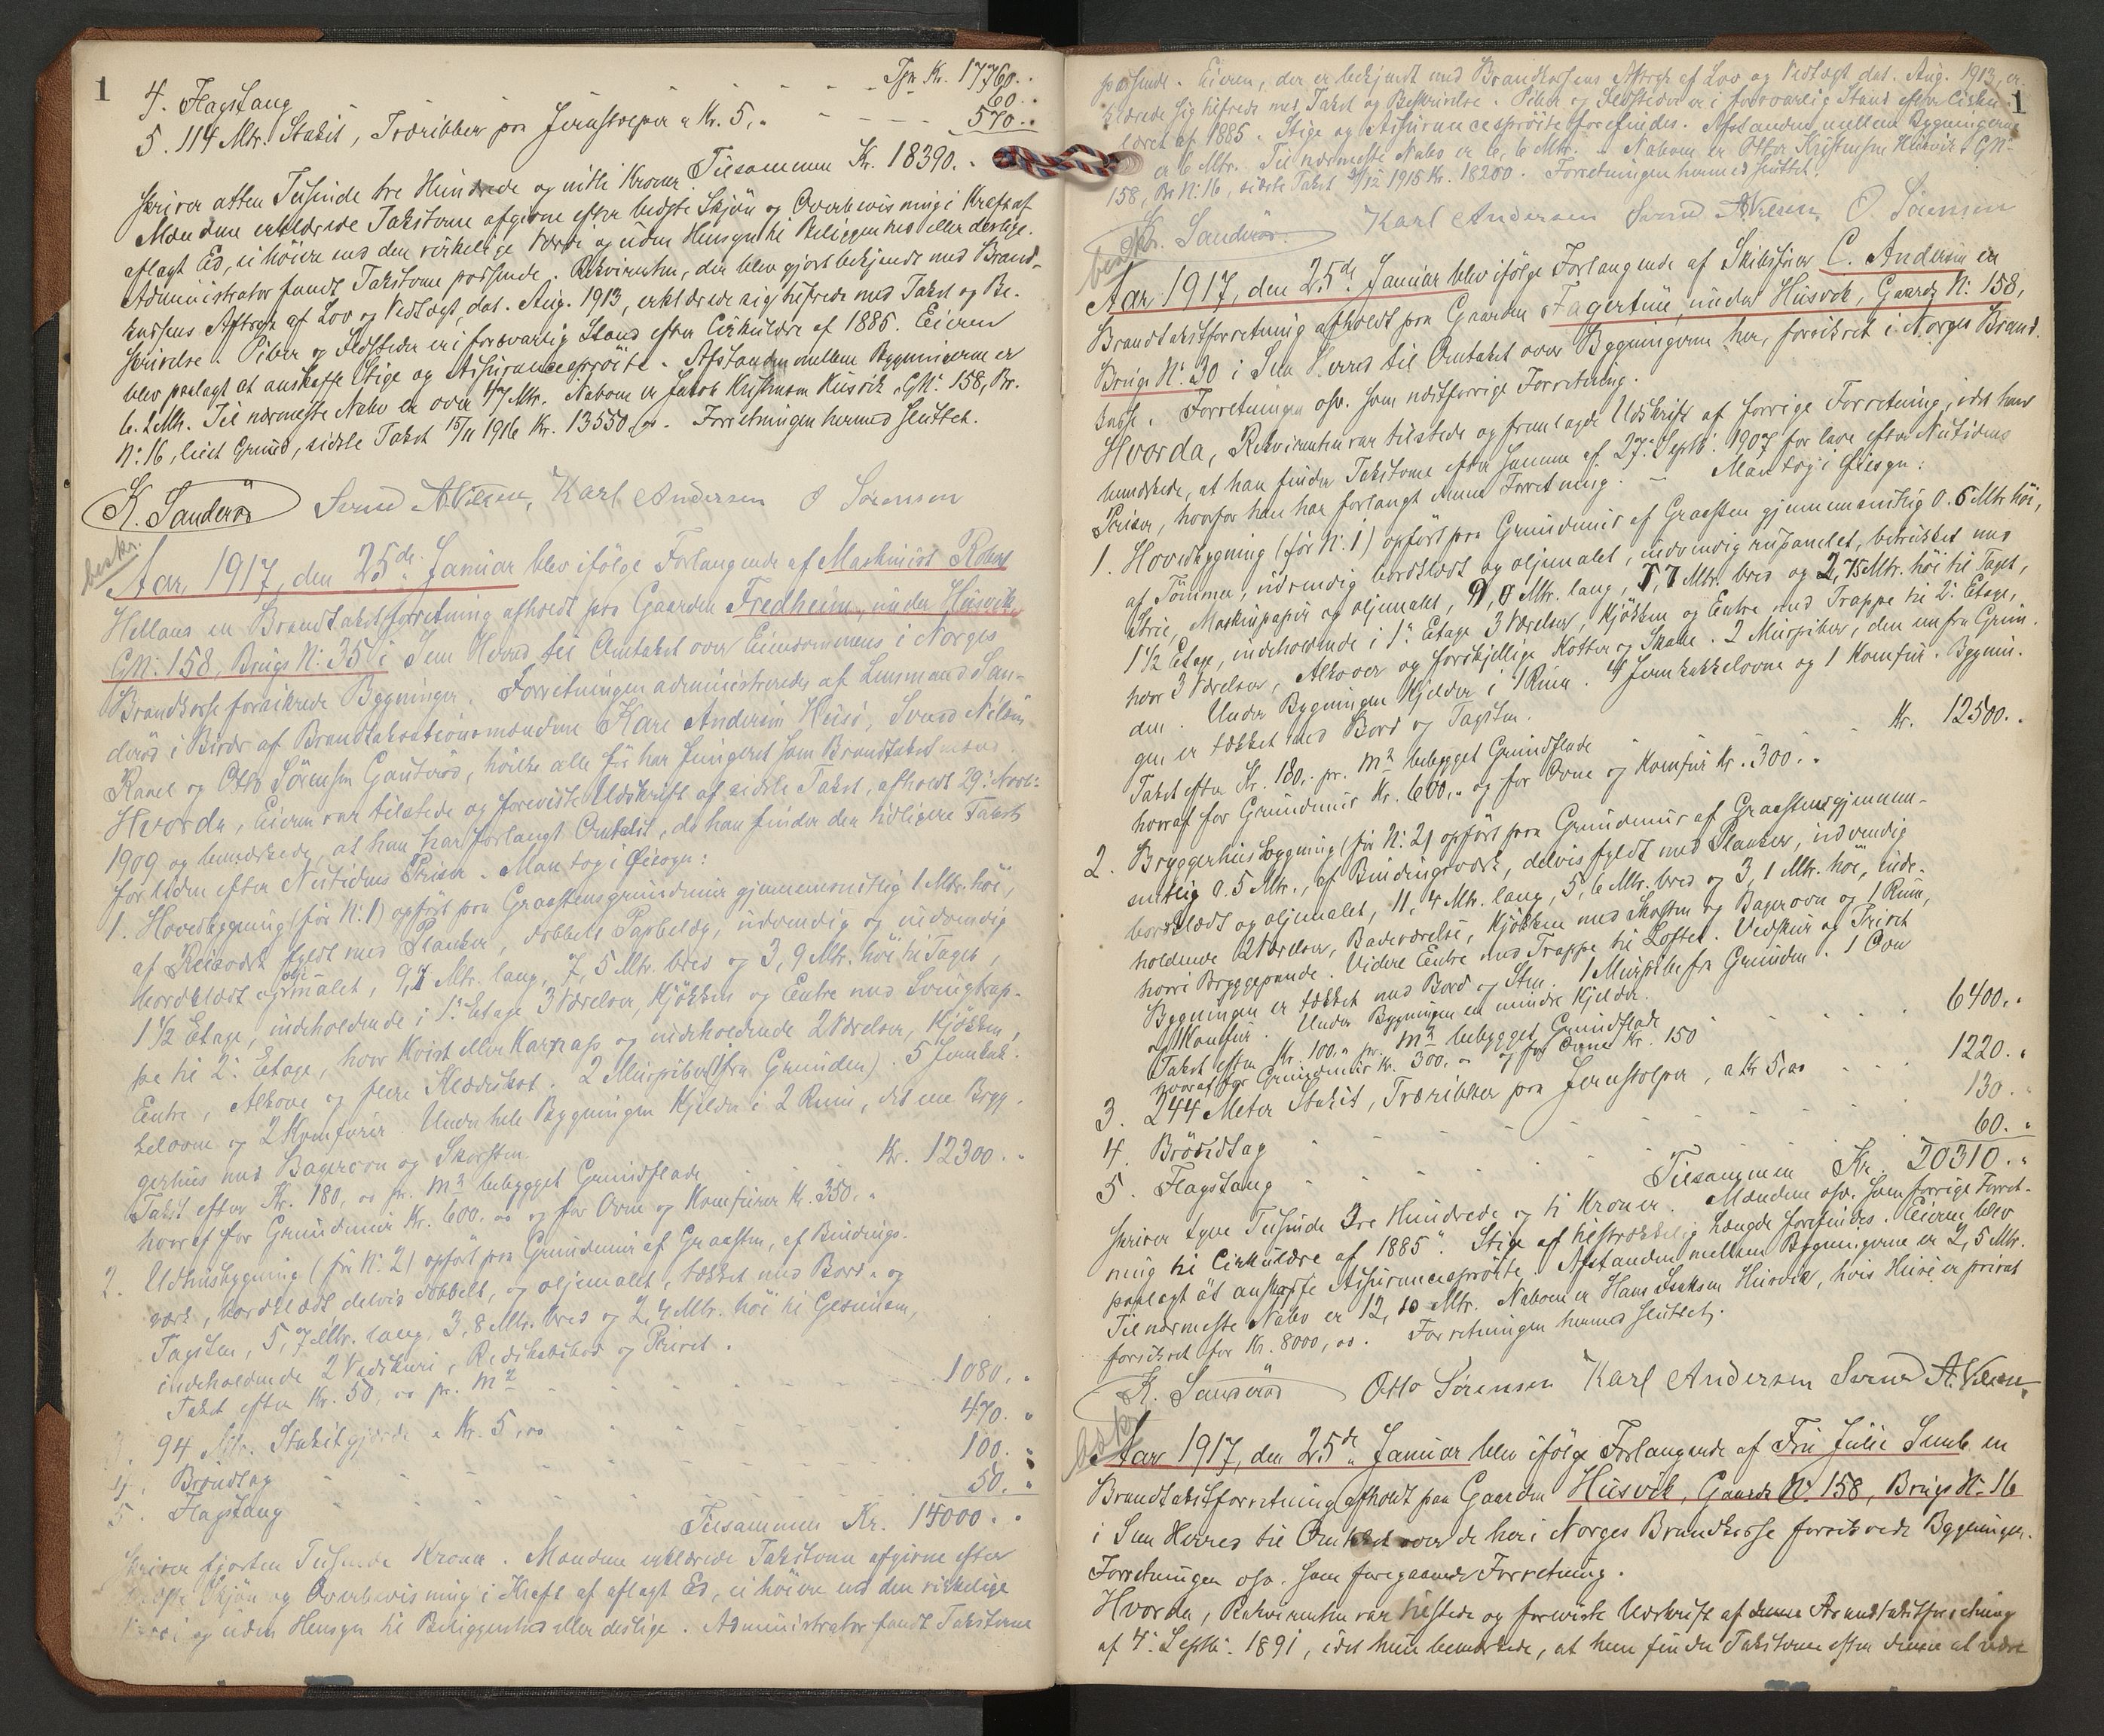 1
Tpr. Kr. 17760. "
4. Flagstang - - - - 60. "
5. 114 Mtr. Stakit, Træribber paa Jernstolper a Kr. 5, " - - - - 570. "
Tilsammen Kr. 18390. "
skriver atten Tusinde tre Hundrede og nitti Kroner.
Mændene erklærede Taksterne afgivne efter bedste Skjön og Overbevisning i Kraft af
aflagt Ed, ei höiere end den virkelige Værdi og uden Hensyn til Beliggenhed eller deslige.
Administrator fandt Taksterne passende. Rekvirenten, der blev gjort bekjendt med Brand-
kassens Aftryk af Lov og Vedtægt, dat. Aug. 1913, erklærede sig tilfreds med Takst og Be-
skrivelse. Piber og Ildsteder er i forsvarlig Stand efter Cirkulære af 1885. Eieren
blev paalagt at anskaffe Stige og Assurancesprøite. Afstanden mellem Bygningerne er
6.2 Mtr. Til nærmeste Nabo er over 47 Mtr. Naboen er Jakob Kristensen Husvik, GN: 158, Br.
N: 16, leiet Grund, sidste Takst 15/11 1916 Kr. 13550, oo. Forretningen hermed sluttet.
K. Sanderöd Svend A. Nilsen, Karl Andersen O Sörensen
beskr.
Aar, 1917, den 25de Januar blev ifölge Forlangende af Maskinist Robert
Hellans en Brandtakstforretning afholdt paa Gaarden Fredheim, under Husvik,
GN: 158, Brugs N: 35 i Sem Herred til Omtakst over Eiendommens i Norges
Brandkasse forsikrede Bygninger. Forretningen administreredes af Lensmand San-
deröd i Bisidd af Brandtakstationsmændene Karl Andersen Husö, Svend Nilsen
Ranel og Otto Sörensen Gauteröd, hvilke alle för har fungeret som Brandtakstmænd.
Hvorda, Eieren var tilstede og foreviste Udskrift af sidste Takst, afholdt 29: Novb:
1909 og bemærkede, at han har forlangt Omtakst, da han finder den tidligere Takst
for liden efter Nutidens Priser. Man tog i Øiesyn:
1. Hovedbygning (för N: 1) opfört paa Graastensgrundmur gjennemsnitlig 1 Mtr. höi,
af Reisværk fyldt med Planker, dobbelt Papbelæg, udvendig og indvendig
bordklædt og oljemalet, 9,1 Mtr. lang, 7,5 Mtr. bred og 3,9 Mtr. höi til Taget,
1 1/2 Etage, indeholdende i 1: Etage 3 Værelser, Kjökken og Entre med Svingtrap-
pe til 2: Etage, hvor Kvist eller Karnap og indeholdende 2 Værelser, Kjökken,
Entre, Alkove og flere Klædeskot. 2 Murpiber (fra Grunden). 5 Jernkak-
kelovne og 2 Komfurer. Under hele Bygningen Kjelder i 2 Rum, det ene Bryg-
gerhus med Bagerovn og Skorsten.
Takst efter Kr. 180, oo pr. m2 bebygget Grundflade - - - Kr. 12300. "
hvoraf for Grundmur Kr. 600, oo og for Ovne og Komfurer Kr. 350. "
2. Udhusbygning (för N: 2) opfört paa Grundmur af Graasten, af Bindings-
værk, bordklædt delvis dobbelt, og oljemalet, tækket med Bord og
Tagsten, 5,7 Mtr. lang, 3,8 Mtr. bred og 2,4 Mtr. höi til Gesimsen,
indeholdende 2 Vedskuri, Redskabsbod og Privet.
Takst efter Kr. 50, oo pr. m2 - - - - 1080, "
3. 94 Mtr. Stakitgjerde a Kr. 5, oo - - - 470. "
4. Bröndtag - - - - 100. "
5. Flagstang - - - - 50. "
Tilsammen Kr. 14000. "
skriver fjorten Tusinde Kroner. Mændene erklærede Taksterne afgivne efter
bedste Skjön og Overbevisning i Kraft af aflagt Ed, ei höiere end den virkelige
Værdi og uden Hensyn til Beliggenhed eller deslige. Administrator fandt Taksterne
1
passende. Eieren, der er bekjendt med Brandkassens Aftryk af Lov og Vedtægt dat. Aug. 1913, er-
klærede sig tilfreds med Takst og Beskrivelse. Piber og Ildsteder er i forsvarlig Stand efter Cirku-
læret af 1885. Stige og Assurancespröite forefindes. Afstanden mellem Bygningerne
er 6 Mtr. Til nærmeste Nabo er 6,6 Mtr. Naboen er Kristensen Husvik, GN:
158, Br N: 16, sidste Takst 1915 Kr. 18200. Forretningen hermed sluttet.
K. Sanderöd. Karl Andersen Svend A. Nilsen, O Sörensen
beskr.
Aar 1917, den 25de Januar blev ifölge Forlangende af Skibsförer C. Andersen en
Brandtakstforretning afholdt paa Gaarden Fagertun, under Husvik, Gaards N: 158,
Brugs N: 30 i Sem Herred til Omtakst over Bygningerne her, forsikret i Norges Brand-
kasse. Forretningen osv. som næstforrige Forretning.
Hvorda, Rekvirenten var tilstede og fremlagde Udskrift af forrige Forretning, idet han
bemærkede, at han finder Taksterne efter samme af 27: Septb: 1907 for lave efter Nutidens
Priser, hvorfor han har forlangt denne Forretning. — Man tog i Øiesyn:
1. Hovedbygning (för N: 1) opfört paa Grundmur af Graasten gjennemsnitlig 0.6 Mtr höi,
af Tömmer, udvendig bordklædt og oljemalet, indvendig rupanelet, betrukket med
Strie, Maskinpapir og oljemalet, 9,0 Mtr. lang, 7,7 Mtr. bred og 2,75 Mtr. höi til Taget,
1 1/2 Etage, indeholdende i 1: Etage 3 Værelser, Kjökken og Entre med Trappe til 2: Etage,
hvor 3 Værelser, Alkover og forskjellige Kotter og Skabe. 2 Murpiber, den ene fra Grun-
den. Under Bygningen Kjelder i 1 Rum. 4 Jernkakkelovne og 1 Komfur. Bygnin-
gen er tækket med Bord og Tagsten.
Takst efter Kr. 180,- pr. m2 bebygget Grundflade - - Kr. 12500. "
hvoraf for Grundmur Kr. 600, " og for Ovne og Komfur Kr. 300. "
2. Bryggerhusbygning (för N: 2) opfört paa Grundmur af Graasten gjennem-
snitlig 0.5 Mtr., af Bindingsværk, delvis fyldt med Planker, udvendig
bordklædt og oljemalet, 11,4 Mtr. lang, 5,6 Mtr. bred og 3,1 Mtr. höi, inde-
holdende 2 Værelser, Badeværelse, Kjökken med Skorsten og Bagerovn og 1 Rum,
hvori Bryggepande. Videre Entre med Trappe til Loftet. Vedskur og Privet
Bygningen er tækket med Bord og Sten. 1 Murpibe fra Grunden. 1 Ovn
og 1 Komfur. Under Bygningen en mindre Kjelder.
Takst efter Kr. 100, " pr. m2 bebygget Grundflade - - 6400. "
hvoraf for Grundmur Kr. 300, " og for Ovne Kr. 150
3. 244 Meter Stakit, Træribber paa Jernstolper, a Kr 5, oo - - 1220. "
4. Bröndtag - - - - 130. "
5. Flagstang - - - - 60. "
Tilsammen Kr. 20310. "
skriver tyve Tusinde Tre Hundrede og ti Kroner. Mændene osv. som forrige Forret-
ning til "Cirkulære af 1885". Stige af tilstrækkelig Længde forefindes. Eieren blev
paalagt at anskaffe Assurancespröite. Afstanden mellem Bygningerne er 2,5 Mtr.
Til nærmeste Nabo er 12,10 Mtr. Naboen er Hans Isaksen Husvik, hvis Hus er privat
forsikret for Kr. 8000, oo. Forretningen hermed sluttet.
K. Sanderöd Otto Sörensen Karl Andersen Svend A. Nilsen
beskr.
Aar 1917, den 25de Januar blev ifölge Forlangende af Fru Julie Semb en
Brandtakstforretning afholdt paa Gaarden Husvik, Gaards N: 158, Brugs N: 16
i Sem Herred til Omtakst over de her i Norges Brandkasse forsikrede Bygninger.
Forretningen osv. som foregaaende Forretning.
Hvorda, Rekvirenten var tilstede og foreviste Udskrift af denne Brandtakstforretning
af 4: Septb: 1891, idet hun bemærkede, at hun finder Taksterne efter denne at være